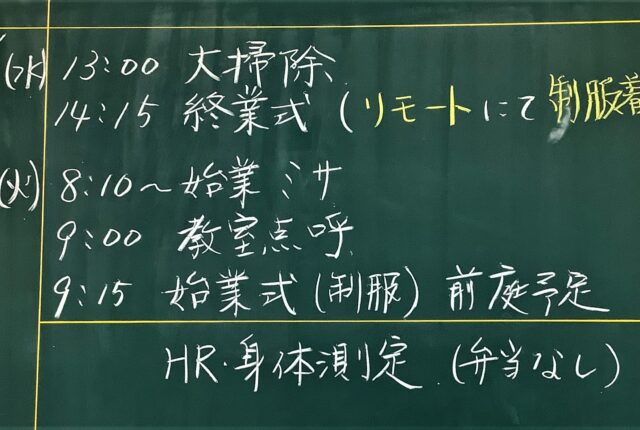 (水) 13:00 大掃除
14:15 終業式 (リモートにて 制服着
(火) 8:10～始業ミサ
9:00 教室点呼
9:15 始業式 (制服) 前庭予定
HR・身体測定 (弁当なし)